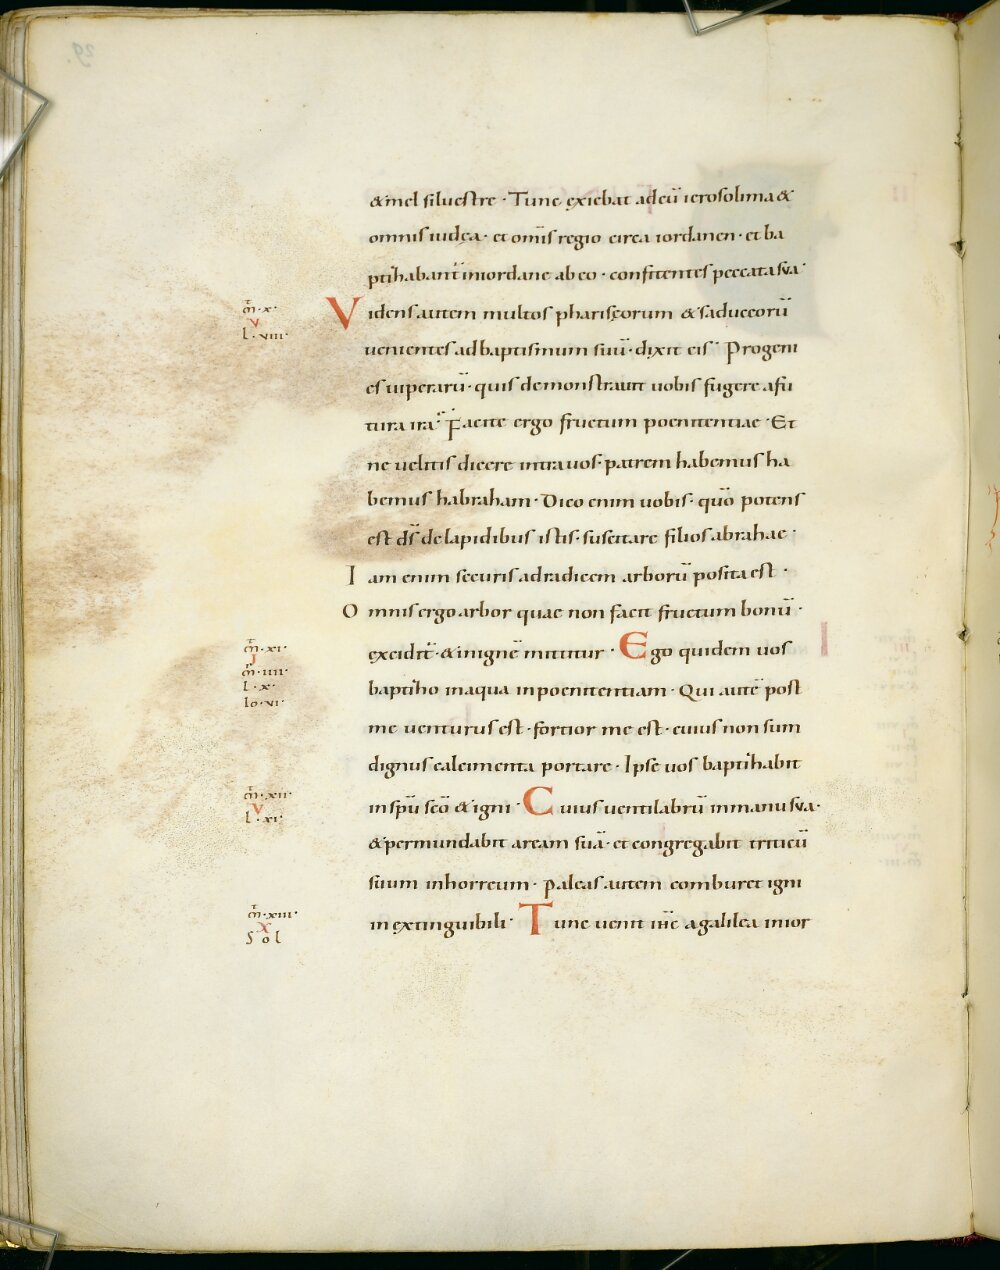 & mel siluestre · Tunc exiebat ad eū ierosolima &
omnis iudęa · et om̄is regio circa iordanen · et ba
ptizabant̄ in iordane ab eo · confitentes peccata sua ·
m̄ · x ·
V
l · viii ·
Videns autem multos pharisęorum & saduceorū
uenientes ad baptismum suū · dixit eis · Progeni
es uiperarū · quis demonstrauit uobis fugere a fu
tura ira · Facite ergo fructum poenitentiae · Et
ne uelitis dicere intra uos · patrem habemus ha
bemus habraham · Dico enim uobis · quō potens
est d̄s de lapidibus istis · suscitare filios abrahae ·
Iam enim securis ad radicem arborū posita est ·
Omnis ergo arbor quae non facit fructum bonū ·
m̄ · xi ·
I
m̄ · iiii ·
l · x ·
Io · vi ·
excidit̄ · & in ignē mittitur · Ego quidem uos
baptizo in aqua in poenitentiam · Qui autē post
me uenturus est · fortior me est · cuius non sum
dignus calcimenta portare · Ipse uos baptizabit
m̄ · xii ·
V
l · xi ·
in sp̄u sc̄o & igni · Cuius uentilabrū in manu sua ·
& permundabit aream suā · et congregabit triticū
suum in horreum · paleas autem comburet igni
m̄ · xiii ·
X
Sol
in extinguibili · Tunc uenit ih̄c a galilea in ior